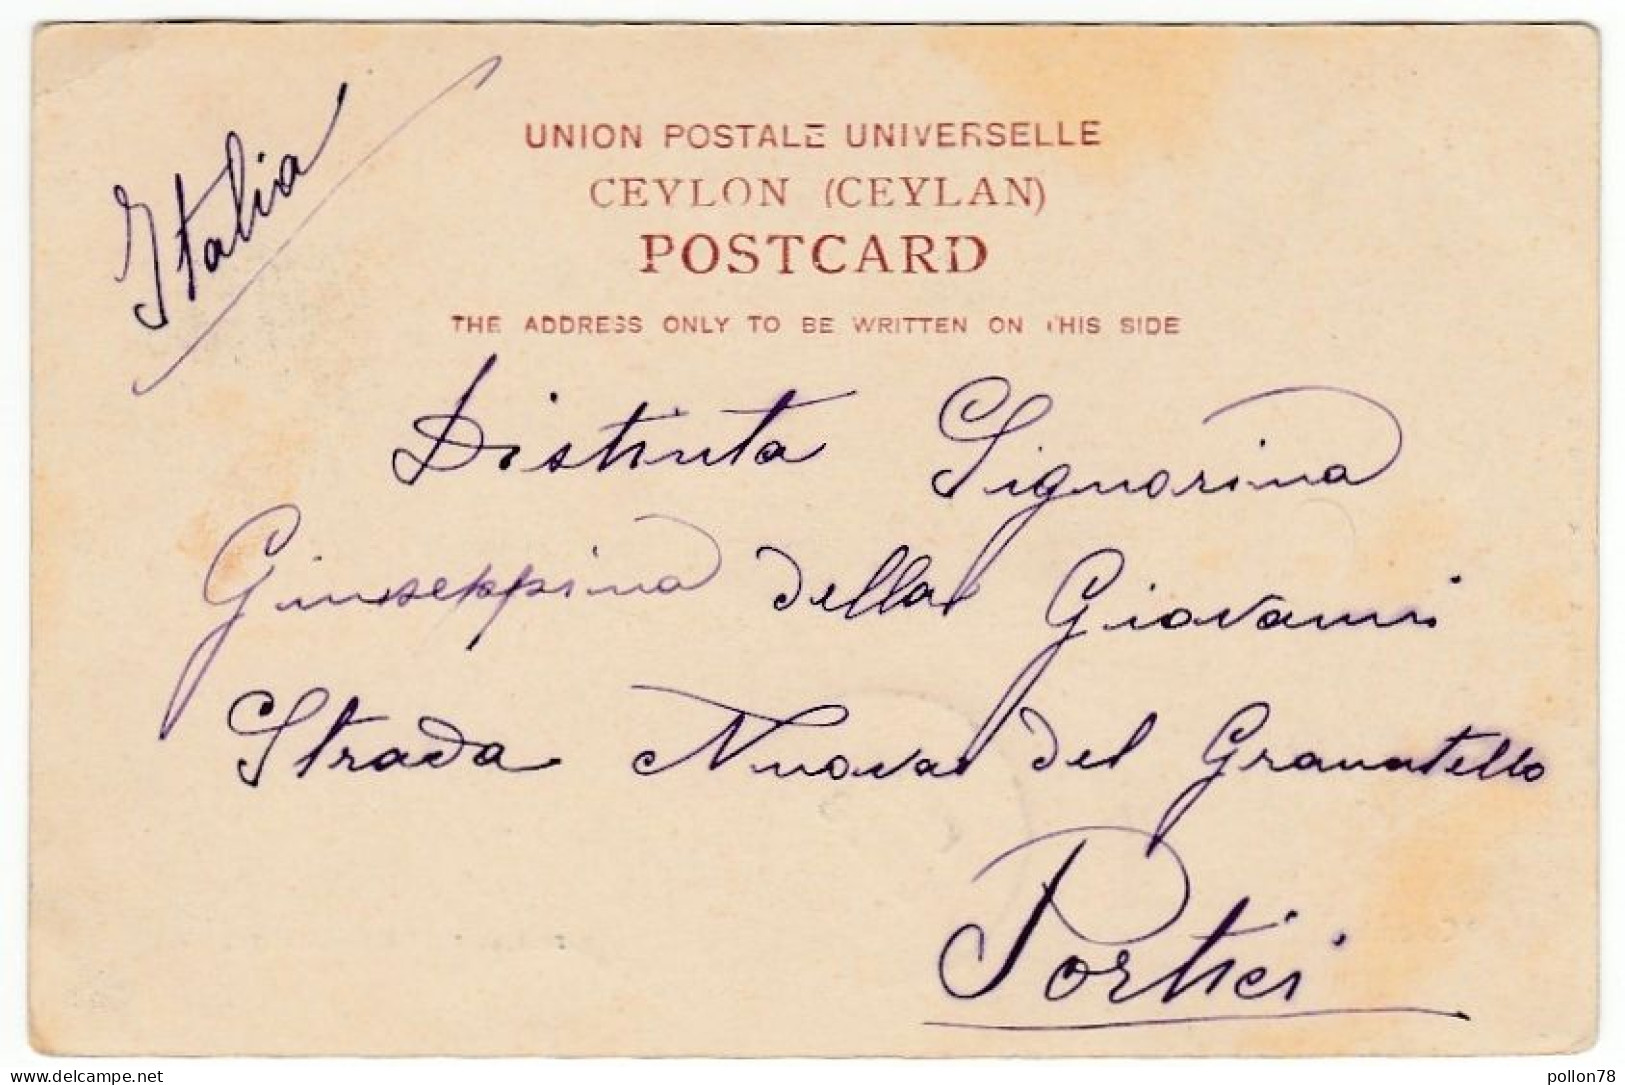 Italia
UNION POSTALE UNIVERSELLE
CEYLON (CEYLAN)
POSTCARD
THE ADDRESS ONLY TO BE WRITTEN ON THIS SIDE
Distinta Signorina
Giuseppina della Giovanni
Strada Nuova del Granatello
Portici
www.delcampe.net
pollon78